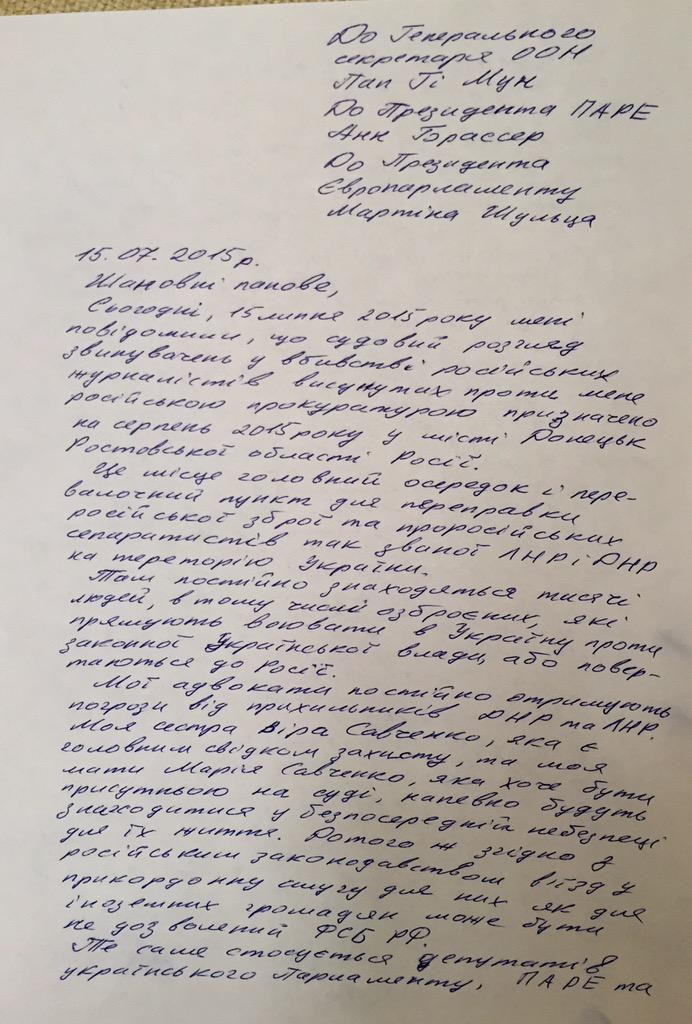 До Генерального
секретаря ООН
Пан Гі Мун
До Президента ПАРЕ
Анн Брассер
До Президента
Європарламенту
Мартіна Шульца
15.07.2015р.
Шановні панове,
Сьогодні, 15 липня 2015 року мені
повідомили, що судовий розгляд
звинувачень у вбивстві російських
журналістів висунутих проти мене
російською прокуратурою призначено
на серпень 2015 року у місті Донецьк
Ростовської області Росії.
Це місце головний осередок і пере-
валочний пункт для переправки
російської зброї та проросійських
сепаратистів так званої ЛНР і ДНР
на тереторію України.
Там постійно знаходяться тисячі
людей, в тому числі озброєних, які
прямують воювати в Україну проти
законної Української влади, або повер-
таються до Росії.
Мої адвокати постійно отримують
погрози від прихильників ДНР та ЛНР.
Моя сестра Віра Савченко, яка є
головним свідком захисту, та моя
мати Марія Савченко, яка хоче бути
присутньою на суді, напевно будуть
знаходитися у безпосередній небезпеці
для їх життя. До того ж згідно з
російським законодавством в'їзд у
прикордонну смугу для них як для
іноземних громадян може бути
не дозволений ФСБ РФ.
Те саме стосується депутатів
українського Парламенту, ПАРЕ та